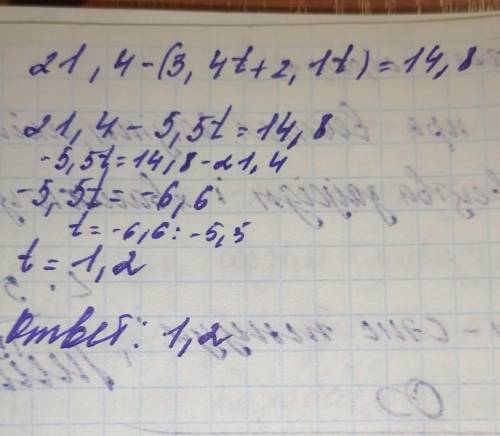 21,4-(3,4t+2,1t)=14,8
21,4-5,5t=14,8
-5,5t=14,8-21,4
-5,5t=-6,6
t=-6,6:-5,5
t=1,2
Ответ: 1,2